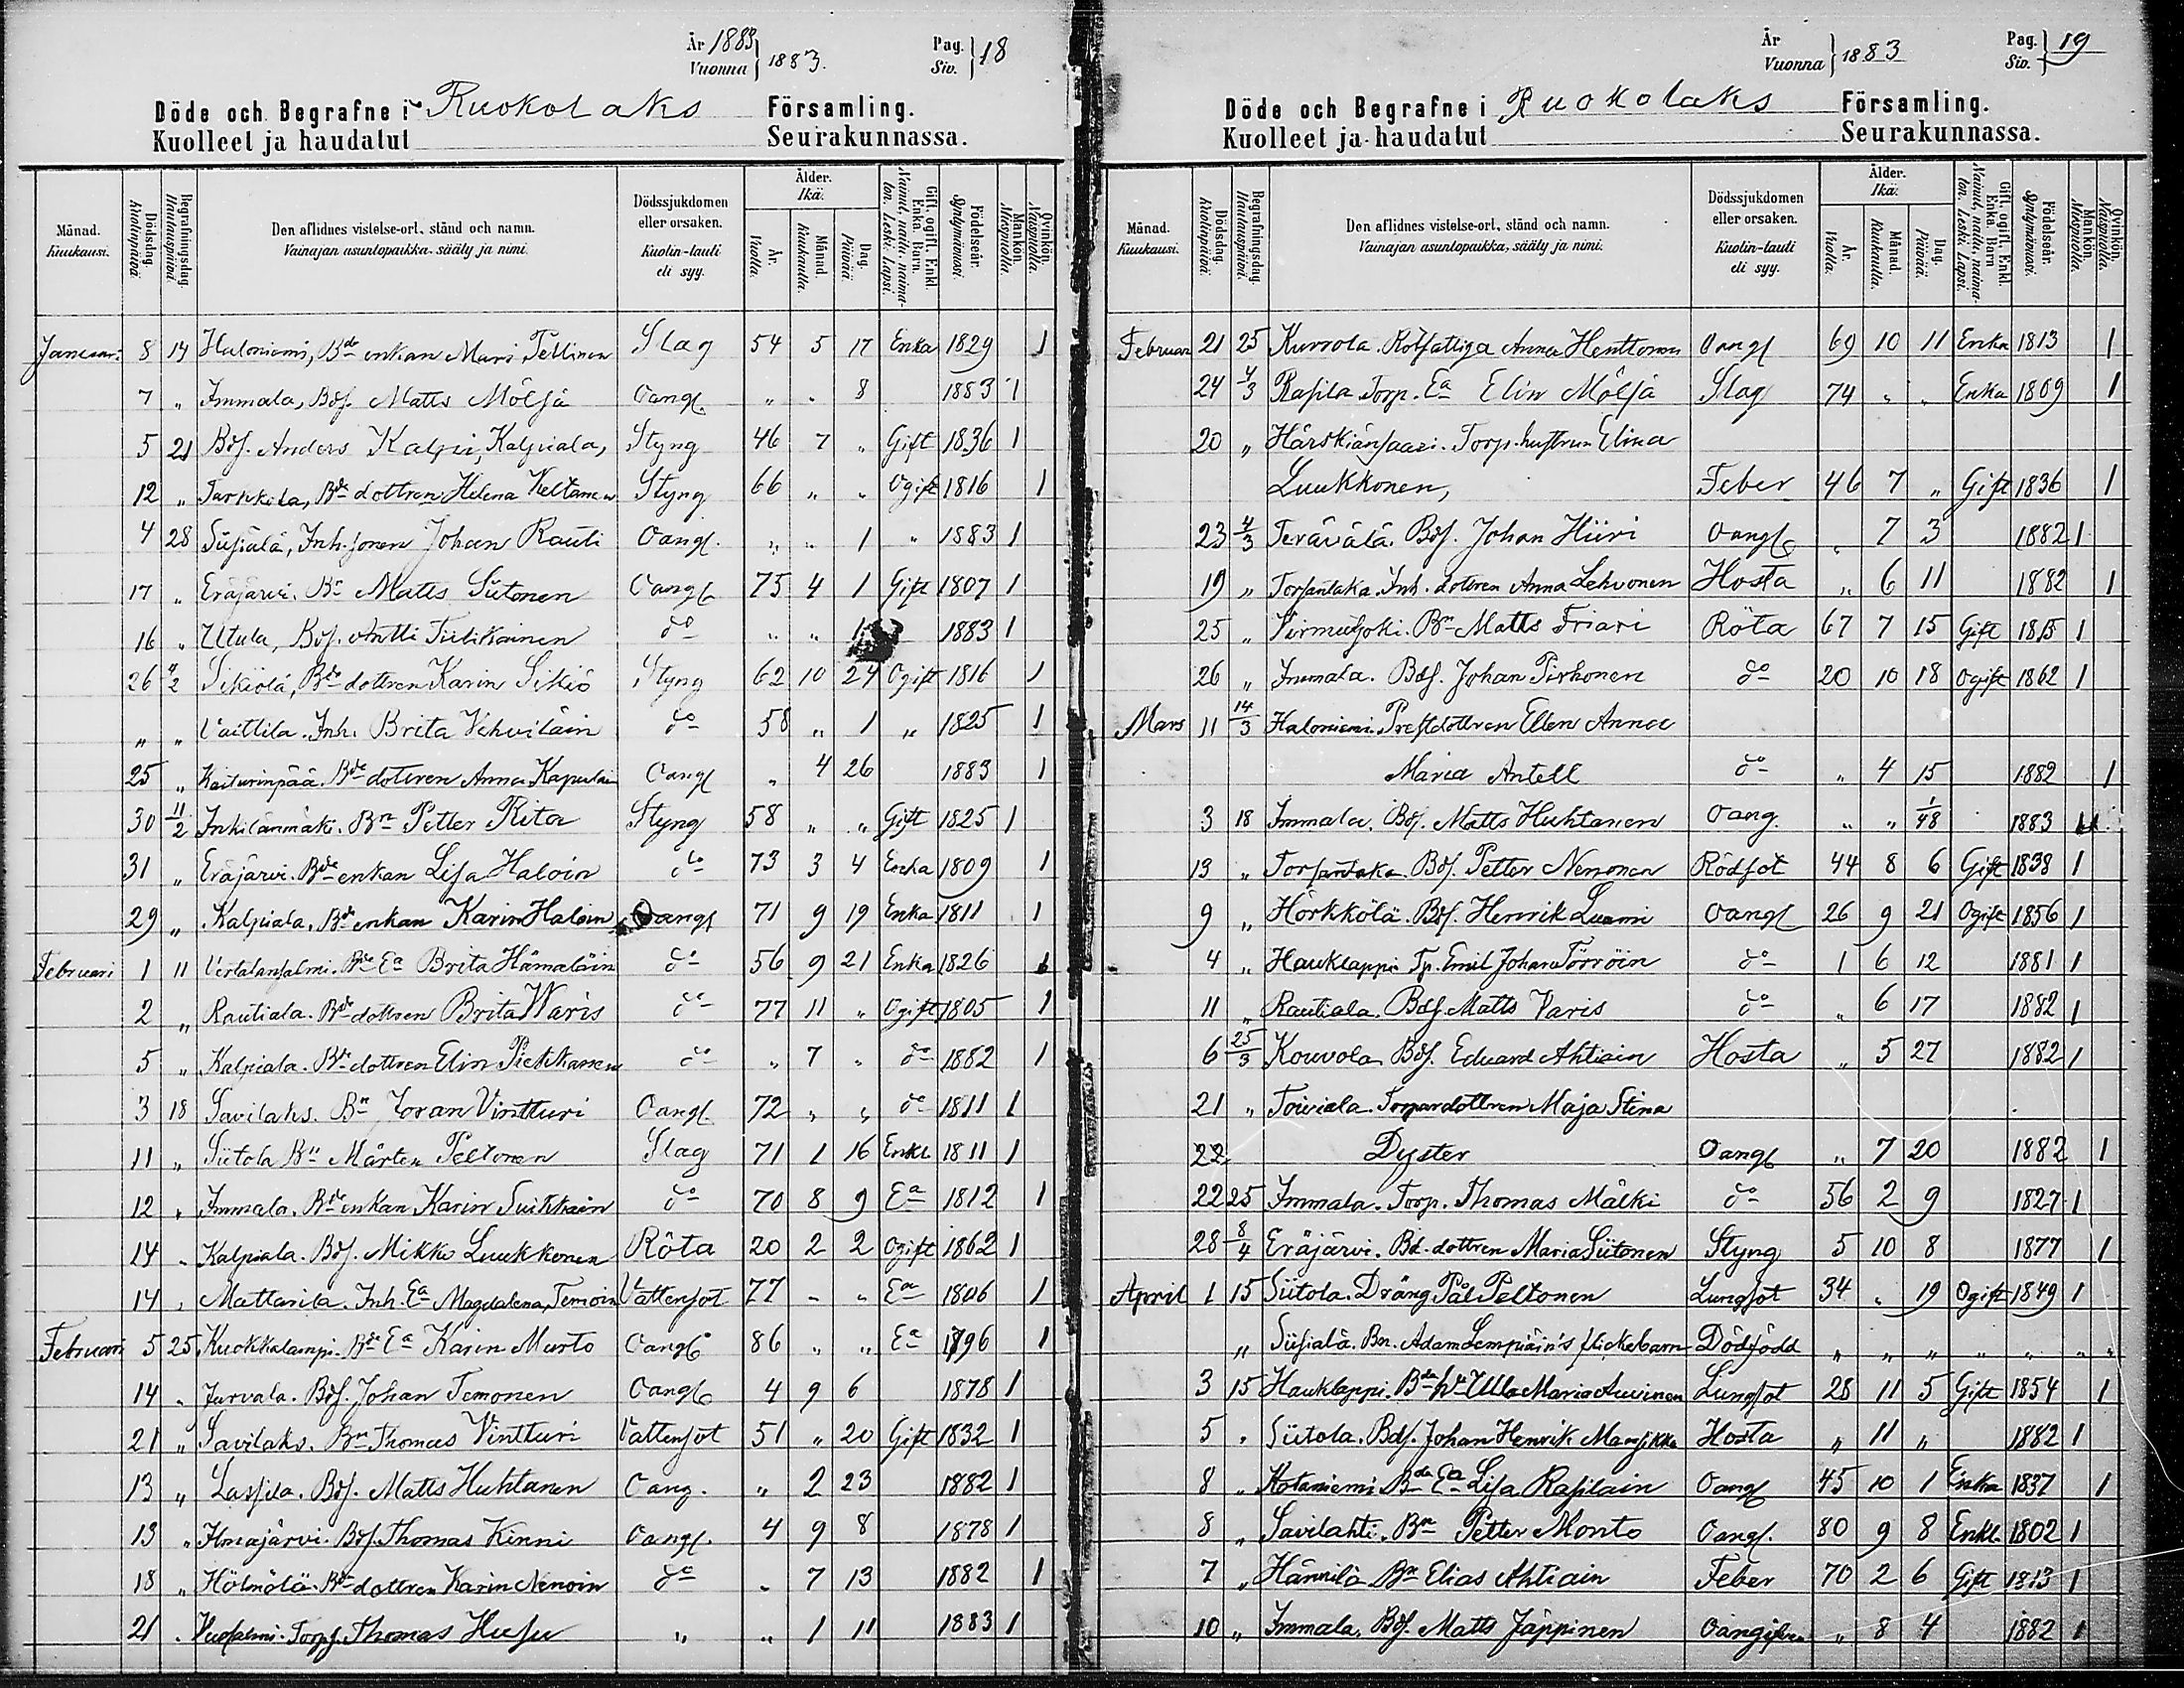 År 1883
Vuonna } 1883.
Pag. Siv. } 18
Döde och Begrafne i Ruokolaks Församling.
Kuolleet ja haudatut Seurakunnassa.
Månad. Kuukausi. Dödsdag. Kuolinpäivä. Begrafningsdag. Hautauspäivä. Den aflidnes vistelse-ort, stånd och namn. Vainajan asuntopaikka, sääty ja nimi. Dödssjukdomen eller orsaken. Kuolin-tauti eli syy. Ålder. Ikä. År. Vuotta. Månad. Kuukautta. Dag. Päivää. Gift, ogift, Enkl. Enka. Barn. Nainut, naitu, naimaton. Leski. Lapsi. Födelseår. Syntymävuosi. Mankön. Miespuolia. Qvinkön. Naispuolia.
Januari 8 14 Haloniemi, Bde enkan Mari Tellinen Slag 54 5 17 Enka 1829 1
7 " Immala, Bds. Matts Mölsä Oangf. " " 8 1883 1
5 21 Bds. Anders Kalpi, Kalpiala, Styng 46 7 " Gift 1836 1
12 " Tarkkila, Bde dottren Helena Weltanen Styng 66 " " Ogift 1816 1
4 28 Siisiälä, Inh. sonen Johan Rauti Oangf. " " 1 " 1883 1
17 " Eräjärvi. Bn Matts Siitonen Oangf 75 4 1 Gift 1807 1
16 " Utula, Bds. Antti Tiilikainen do " " 1883 1
26 4/2 Sikiölä, Bde dottren Karin Sikiö Styng 62 10 24 Ogift 1816 1
" " Vaittila. Inh. Brita Vehviläin do 58 " 1 " 1825 1
25 " Kaiturinpää. Bde dottren Anna Oangf " 4 26 1883 1
30 11/2 Inkilänmäki. Bn Petter Rita Styng 58 " " Gift 1825 1
31 " Eräjärvi. Bde enkan Lisa Haloin do 73 3 4 Enka 1809 1
29 " Kalpiala. Bde enkan Karin Haloin Oangf 71 9 19 Enka 1811 1
Februari 1 11 Bde Ea Brita Hämäläin do 56 9 21 Enka 1826 1
2 " Rautiala. Bde dottren Brita Waris do 77 11 " Ogift 1805 1
5 " Kalpiala. Bde dottren Elin do " 7 " do 1882 1
3 18 Savilaks. Bn Joran Vintturi Oangf. 72 " " do 1811 1
11 " Siitola Bn Mårten Peltonen Slag 71 1 16 Enkl 1811 1
12 " Immala. Bde enkan Karin Suikkain do 70 8 9 Ea 1812 1
14 " Kalpiala. Bds. Mikko Luukkonen Röta 20 2 2 Ogift 1862 1
14 " Inh. Ea Magdalena Temoin Vattensot 77 - " Ea 1806 1
Februari 5 25 Kuokkalampi. Bde Ea Karin Murto Oangf 86 " " Ea 1796 1
14 " Jurvala. Bds. Johan Temonen Oangf 4 9 6 1878 1
21 " Savilaks. Bn Thomas Vintturi Vattensot 51 " 20 Gift 1832 1
13 " Lassila. Bds. Matts Huhtanen Oang. " 2 23 1882 1
13 " Ilmajärvi. Bds. Thomas Kinni Oangf. 4 9 8 1878 1
18 " Hölmölä. Bde dottren Karin Nenoin do " 7 13 1882 1
21 " Vuosalmi. Torps. Thomas Husu " " 1 11 1883 1
År
Vuonna } 1883
Pag. Siv. } 19
Döde och Begrafne i Ruokolaks Församling.
Kuolleet ja haudatut Seurakunnassa.
Månad. Kuukausi. Dödsdag. Kuolinpäivä. Begrafningsdag. Hautauspäivä. Den aflidnes vistelse-ort, stånd och namn. Vainajan asuntopaikka, sääty ja nimi. Dödssjukdomen eller orsaken. Kuolin-tauti eli syy. Ålder. Ikä. År. Vuotta. Månad. Kuukautta. Dag. Päivää. Gift, ogift, Enkl. Enka. Barn. Nainut, naitu, naimaton. Leski. Lapsi. Födelseår. Syntymävuosi. Mankön. Miespuolia. Qvinkön. Naispuolia.
Februari 21 25 Kurvola. Rotfattiga Anna Henttonen Oangf 69 10 11 Enka 1813 1
24 4/3 Rasila Torp. Ea Elin Mölsä Slag 74 " " Enka 1809 1
20 " Härskiänsaari. Torp. hustrun Elina
Luukkonen, Feber 46 7 " Gift 1836 1
23 4/3 Terävälä. Bds. Johan Hiiri Oangf " 7 3 1882 1
19 " Torsantaka. Inh. dottren Anna Lehvonen Hosta " 6 11 1882 1
25 " Virmutjoki. Bn Matts Friari Röta 67 7 15 Gift 1815 1
26 " Immala. Bds. Johan Pirhonen do 20 10 18 Ogift 1862 1
Mars 11 14/3 Haloniemi. Prestdottren Ellen Anna
Maria Antell do " 4 15 1882 1
3 18 Immala. Bds. Matts Huhtanen Oang. " " 1/48 1883 1
13 " Torsantaka. Bds. Petter Nenonen Rödsot 44 8 6 Gift 1838 1
9 " Hörkkölä. Bds. Henrik Luumi Oangf 26 9 21 Ogift 1856 1
4 " Hauklappi Tp. Emil Johan Törröin do 1 6 12 1881 1
11 " Rautiala. Bds. Matts Varis do " 6 17 1882 1
6 25/3 Kouvola. Bds. Eduard Ahtiain Hosta " 5 27 1882 1
21 " Toiviala. Torpardottren Maja Stina
22 Dyster Oangf " 7 20 1882 1
22 25 Immala. Torp. Thomas Mälki do 56 2 9 1827 1
28 8/4 Eräjärvi. Bd. dottren Maria Siitonen Styng 5 10 8 1877 1
April 1 15 Siitola. Dräng Pål Peltonen Lungsot 34 " 19 Ogift 1849 1
" Siisiälä. Bn. Adam Lempiäin's flickebarn Dödfödd " " " " " " "
3 15 Hauklappi. Bde hu Ulla Maria Auvinen Lungsot 28 11 5 Gift 1854 1
5 " Siitola. Bds. Johan Henrik Mansikka Hosta " 11 " 1882 1
8 " Kotaniemi Bde Ea Lisa Rasilain Oangf 45 10 1 Enka 1837 1
8 " Savilahti. Bn Petter Monto Oangf. 80 9 8 Enkl. 1802 1
7 " Hännilä Bn Elias Ahtiain Feber 70 2 6 Gift 1813 1
10 " Immala. Bds. Matts Jäppinen " 8 4 1882 1